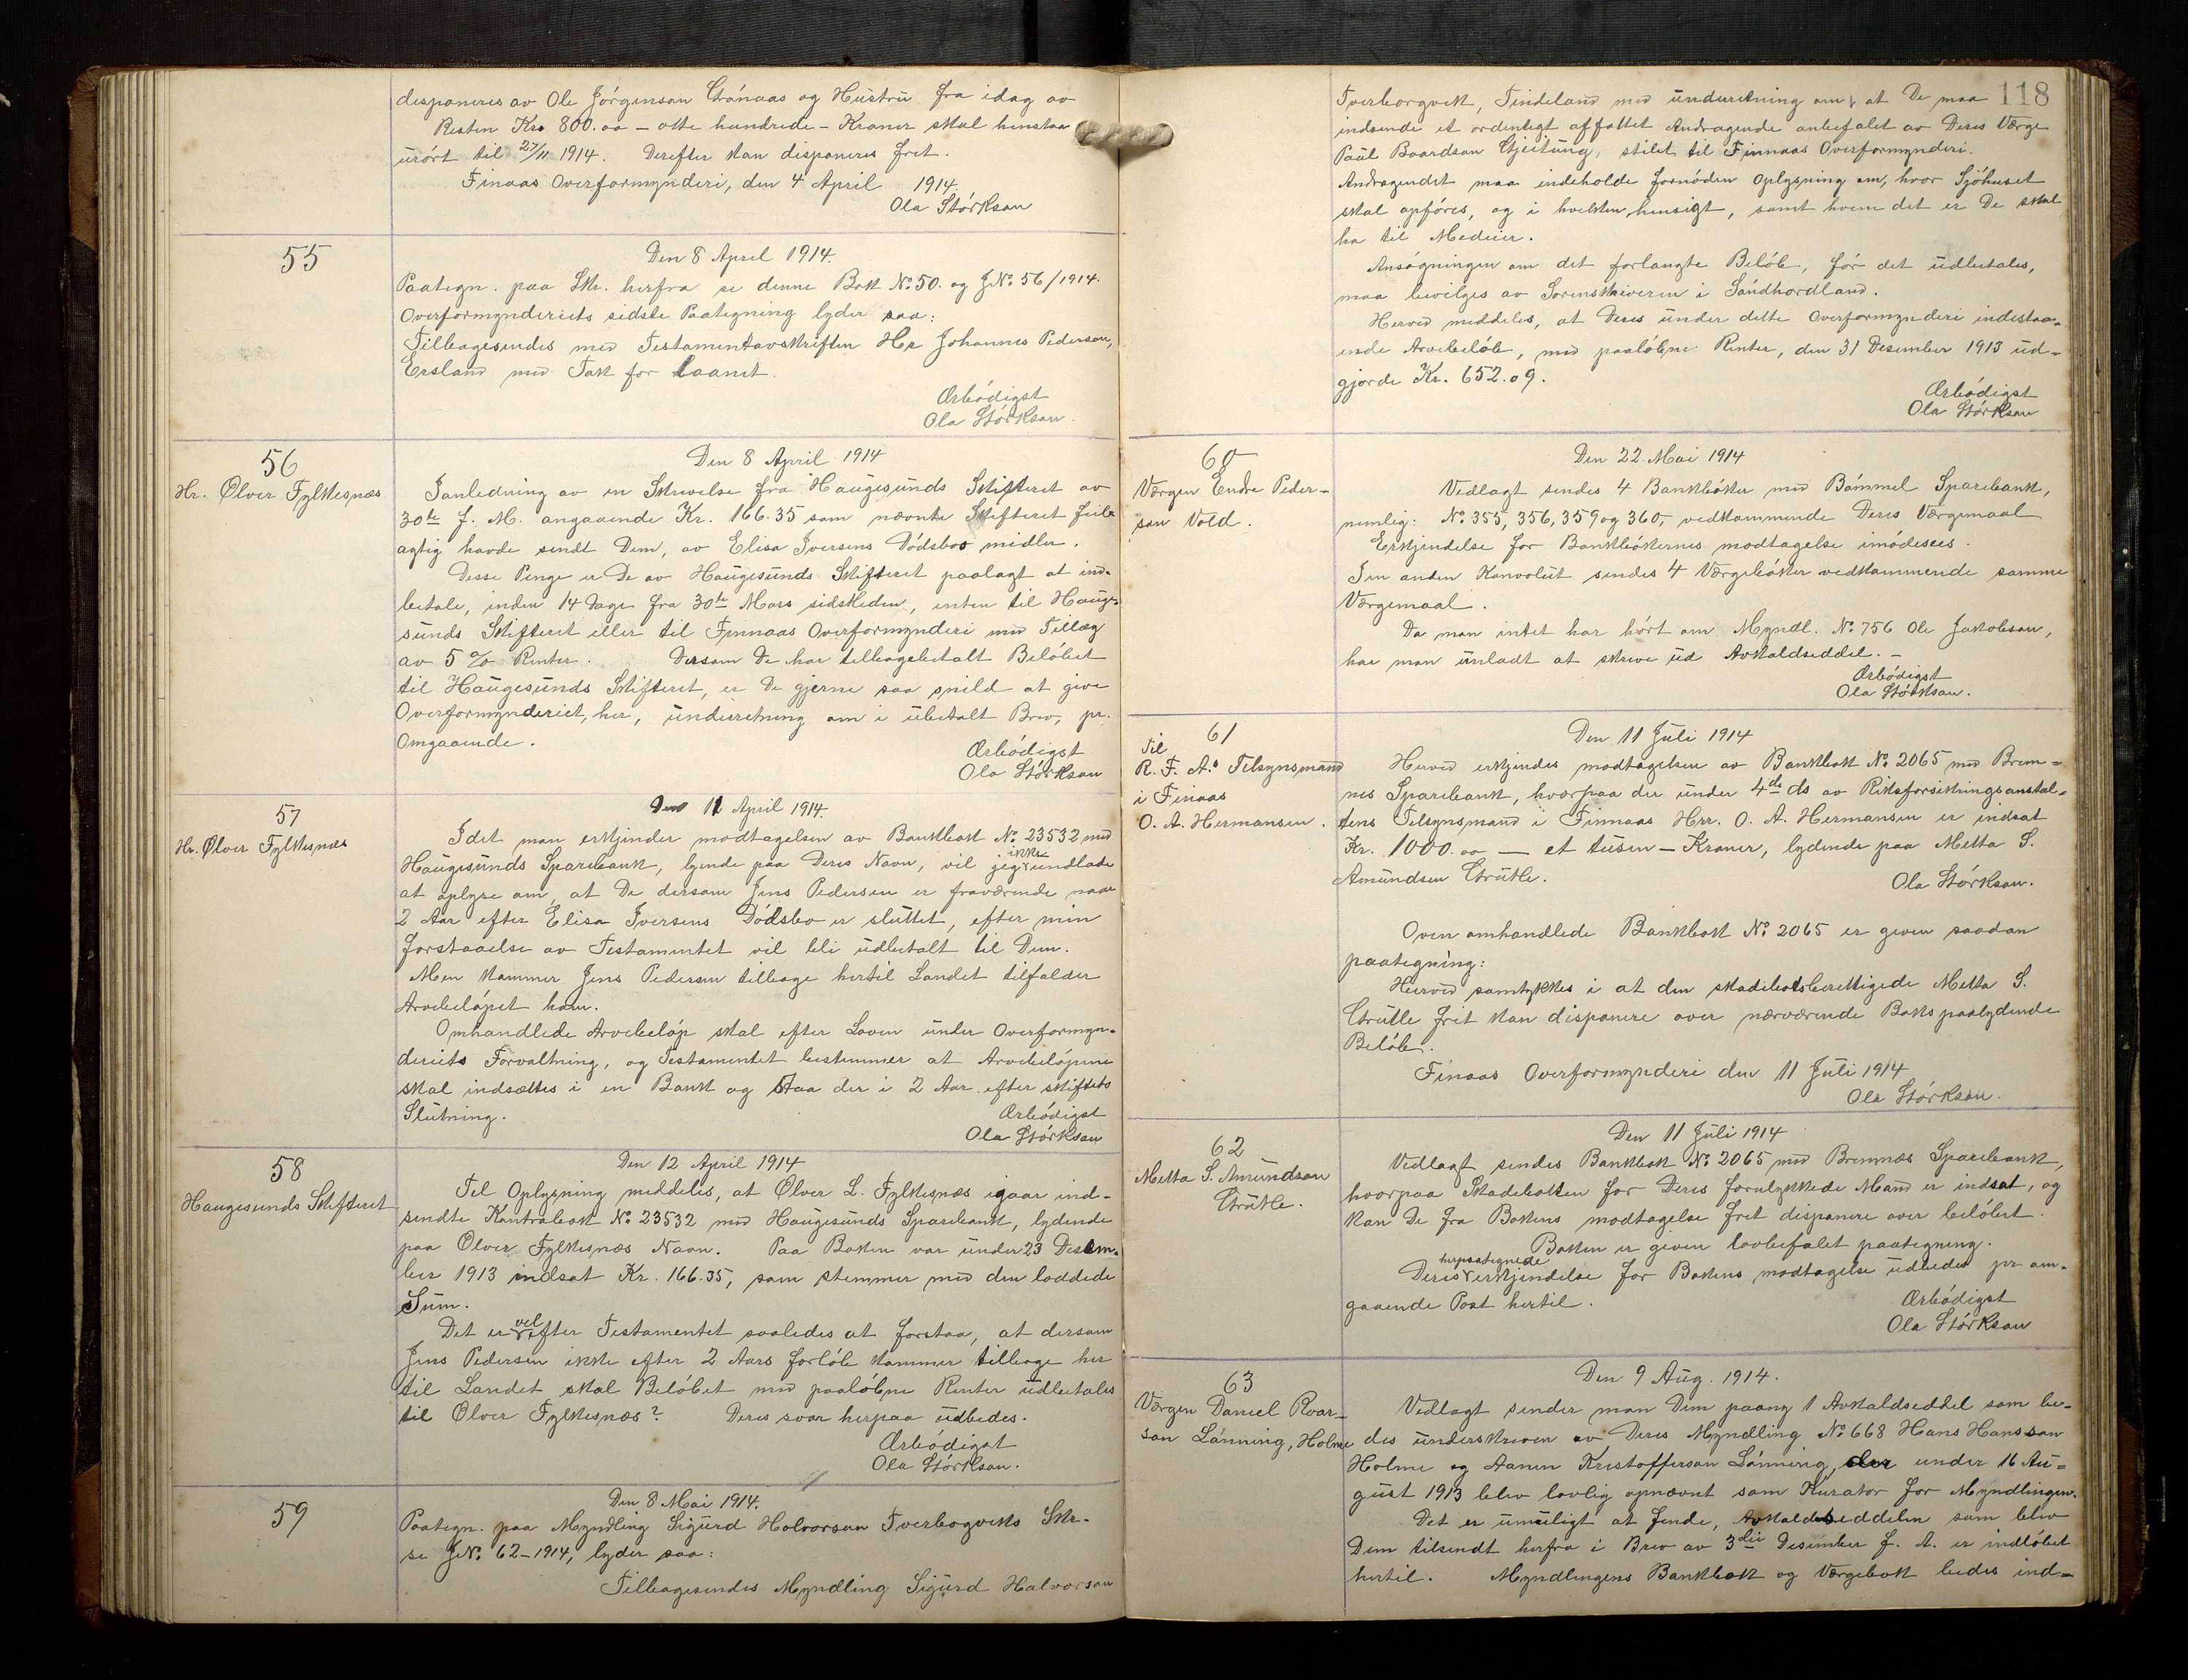 disponeres av Ole Jörgensen Grönaas og Hustru fra idag av
Resten Kr. 800.00 – otte hundrede – Kroner skal henstaa
urört til 27/11 1914. Derefter kan disponeres frit.
Finaas Overformynderi, den 4 April 1914.
Ola Störkson
55
Den 8 April 1914.
Paategn. paa Skr. herfra se denne Bok No. 50. og J No. 56/1914.
Overformynderiets sidste Paategning lyder saa:
Tilbagesendes med Testamentavskriften Hr. Johannes Pederson,
Ersland med Tak for Laanet.
Ærbödigst
Ola Störkson.
56
Hr. Ölver Fylkesnæs
Den 8 April 1914
Ianledning av en Skrivelse fra Haugesunds Skifteret av
30te f. M. angaaende Kr. 166.35 som nævnte Skifteret feil-
agtig havde sendt Dem, av Elisa Iversens Dödsbos midler.
Desse Penge er De av Haugesunds Skifteret paalagt at ind-
betale, inden 14 Dage fra 30te Mars sidstleden, enten til Hauge-
sunds Skifteret eller til Finnaas Overformynderi med Tillæg
av 5 % Renter. Dersom De har tilbagebetalt Belöbet
til Haugesunds Skifteret, er De gjerne saa snild at give
Overformynderiet, her, underretning om i ubetalt Brev, pr.
Omgaaende.
Ærbödigst
Ola Störkson
57
Hr. Ölver Fylkesnæs
Den 11 April 1914.
Idet man erkjender modtagelsen av Bankbok No. 23532 med
Haugesunds Sparebank, lyende paa Deres Navn, vil jeg ikke undlade
at oplyse om, at De dersom Jens Pedersen er fraværende naar
2 Aar efter Elisa Iversens Dödsbo er sluttet, efter min
forstaaelse av Testamentet vil bli udbetalt til Dem.
Men kommer Jens Pedersen tilbage hertil Landet tilfalder
Arvebelöpet ham.
Omhandlede Arvebelöp skal efter Loven under Overformyn-
deriets Forvaltning, og Testamentet bestemmer at Arvebelöpene
skal indsættes i en Bank og staa der i 2 Aar efter skiftets
Slutning.
Ærbödigst
Ola Störkson
58
Haugesunds Skifteret
Den 12 April 1914
Til Oplysning meddeles, at Ölver L. Fylkesnæs igaar ind-
sendte Kontrabok No. 23532 med Haugesunds Sparebank, lydende
paa Ölver Fylkesnæs Navn. Paa Boken var under 23 Desem-
ber 1913 indsat Kr. 166.35, som stemmer med den loddede
Sum.
Det er vel efter Testamentet saaledes at forstaa, at dersom
Jens Pedersen ikke efter 2 Aars forlöb kommer tilbage her
til Landet skal Belöbet med paalöbne Renter udbetales
til Ölver Fylkesnæs? Deres svar herpaa udbedes.
Ærbödigst
Ola Störkson.
59
Den 8 Mai 1914.
Paategn. paa Myndling Sigurd Halvorson Tverbogviks Skr.
se J No. 62–1914, lyder saa:
Tilbagesendes Myndling Sigurd Halvorson
118
Tverborgvik, Tindeland med underretning om, at De maa
indsende et ordentligt affattet Andragende anbefalet av Deres Værge
Paul Baardson Gjeitung, stilet til Finnaas Overformynderi.
Andragendet maa indeholde fornöden oplysning om, hvor Sjöhuset
skal opföres, og i hvilken hensigt, samt hvem det er De skal
ha til Medeier.
Ansögningen om det forlangte Belöb, för det udbetales,
maa bevilges av Sorenskriveren i Söndhordland.
Herved meddeles, at Deres under dette Overformynderi indestaa-
ende Arvebelöb, med paalöbne Renter, den 31 Desember 1913 ud-
gjorde Kr. 652.09.
Ærbödigst
Ola Störkson
60
Værgen Endre Peder-
son Vold.
Den 22. Mai 1914
Vedlagt sendes 4 Bankböker med Bömmel Sparebank,
nemlig: No. 355, 356, 359 og 360, vedkommende Deres Værgemaal
Erkjendelse for Bankbökernes modtagelse imödesees.
I en anden Konvolut sendes 4 Værgeböker vedkommende samme
Værgemaal.
Da man intet har hört om Myndl. No. 756 Ole Jakobson,
har man unladt at skrive ud Avkaldseddel. –
Ærbödigst
Ola Störkson.
61
Til
R. F. A.s Tilsynsmand
i Finaas
O. A. Hermansen.
Den 11 Juli 1914
Herved erkjendes modtagelsen av Bankbok No. 2065 med Brem-
nes Sparebank, hvorpaa der under 4de ds av Riksforsikringsanstal-
tens Tilsynsmand i Finnaas Hrr. O. A. Hermansen er indsat
Kr. 1000.00 — et tusen – Kroner, lydende paa Metta S.
Amundsen Grutle.
Ola Störkson.
Oven omhandlede Bankbok No. 2065 er given saadan
paategning:
Herved samtykkes i at den skadebotsberettigede Metta S.
Grutle frit kan disponere over nærværende Boks paalydende
Belöb.
Finaas Overformynderi den 11 Juli 1914
Ola Störkson.
62
Metta S. Amundson
Grutle.
Den 11 Juli 1914
Vedlagt sendes Bankbok No. 2065 med Bremnæs Sparebank,
hvorpaa Skadeboten for Deres forulykkede Mand er indsat, og
kan De fra Bokens modtagelse frit disponere over belöbet.
Boken er given lovbefalet paategning.
Deres herpaategnede erkjendelse for Bokens modtagelse udbedes pr om-
gaaende Post hertil.
Ærbödigst
Ola Störkson
63
Værgen Daniel Roar-
son Lönning, Holme
Den 9 Aug. 1914.
Vedlagt sender man Dem paany 1 Avkaldseddel som be-
des underskreven av Deres Myndling No. 668 Hans Hansson
Holme og Aanen Kristofferson Lönning, der under 16 Au-
gust 1913 blev lovlig opnævnt som Kurator for Myndlingen.
Det er umuligt at finde, Avkaldseddelen som blev
Dem tilsendt herfra i Brev av 3die Desember f. A. er indlöbet
hertil. Myndlingens Bankbok og Værgebok bedes ind-